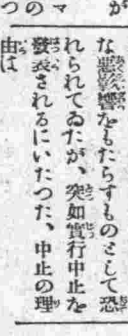 が　マの　つ
な惡影響をもたらすものとして恐
れられてゐたが、突如實行中止を
發表されるにいたつた、中止の理
由は